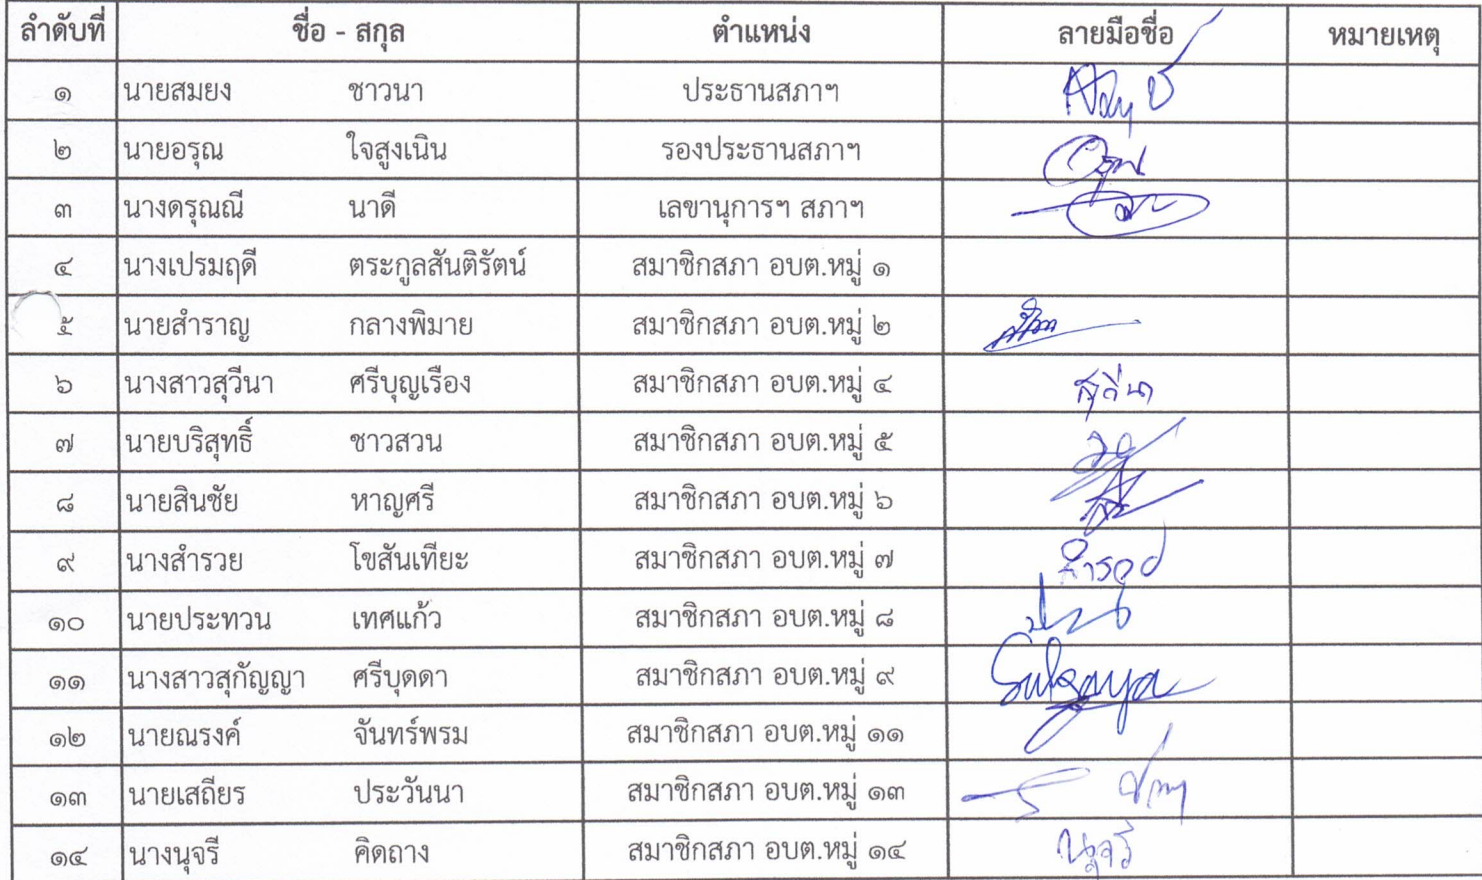 ลำดับที่ ชื่อ - สกุล ตำแหน่ง ลายมือชื่อ หมายเหตุ
๑ นายสมยง ชาวนา ประธานสภาฯ
๒ นายอรุณ ใจสูงเนิน รองประธานสภาฯ อรุณ
๓ นางดรุณณี นาดี เลขานุการฯ สภาฯ
๔ นางเปรมฤดี ตระกูลสันติรัตน์ สมาชิกสภา อบต.หมู่ ๑
๕ นายสำราญ กลางพิมาย สมาชิกสภา อบต.หมู่ ๒
๖ นางสาวสุวีนา ศรีบุญเรือง สมาชิกสภา อบต.หมู่ ๔ สุวีนา
๗ นายบริสุทธิ์ ชาวสวน สมาชิกสภา อบต.หมู่ ๕
๘ นายสินชัย หาญศรี สมาชิกสภา อบต.หมู่ ๖
๙ นางสำรวย โขสันเทียะ สมาชิกสภา อบต.หมู่ ๗ สำรวย
๑๐ นายประทวน เทศแก้ว สมาชิกสภา อบต.หมู่ ๘
๑๑ นางสาวสุกัญญา ศรีบุดดา สมาชิกสภา อบต.หมู่ ๙ Sukanya
๑๒ นายณรงค์ จันทร์พรม สมาชิกสภา อบต.หมู่ ๑๑
๑๓ นายเสถียร ประวันนา สมาชิกสภา อบต.หมู่ ๑๓
๑๔ นางนุจรี คิดถาง สมาชิกสภา อบต.หมู่ ๑๔ นุจรี